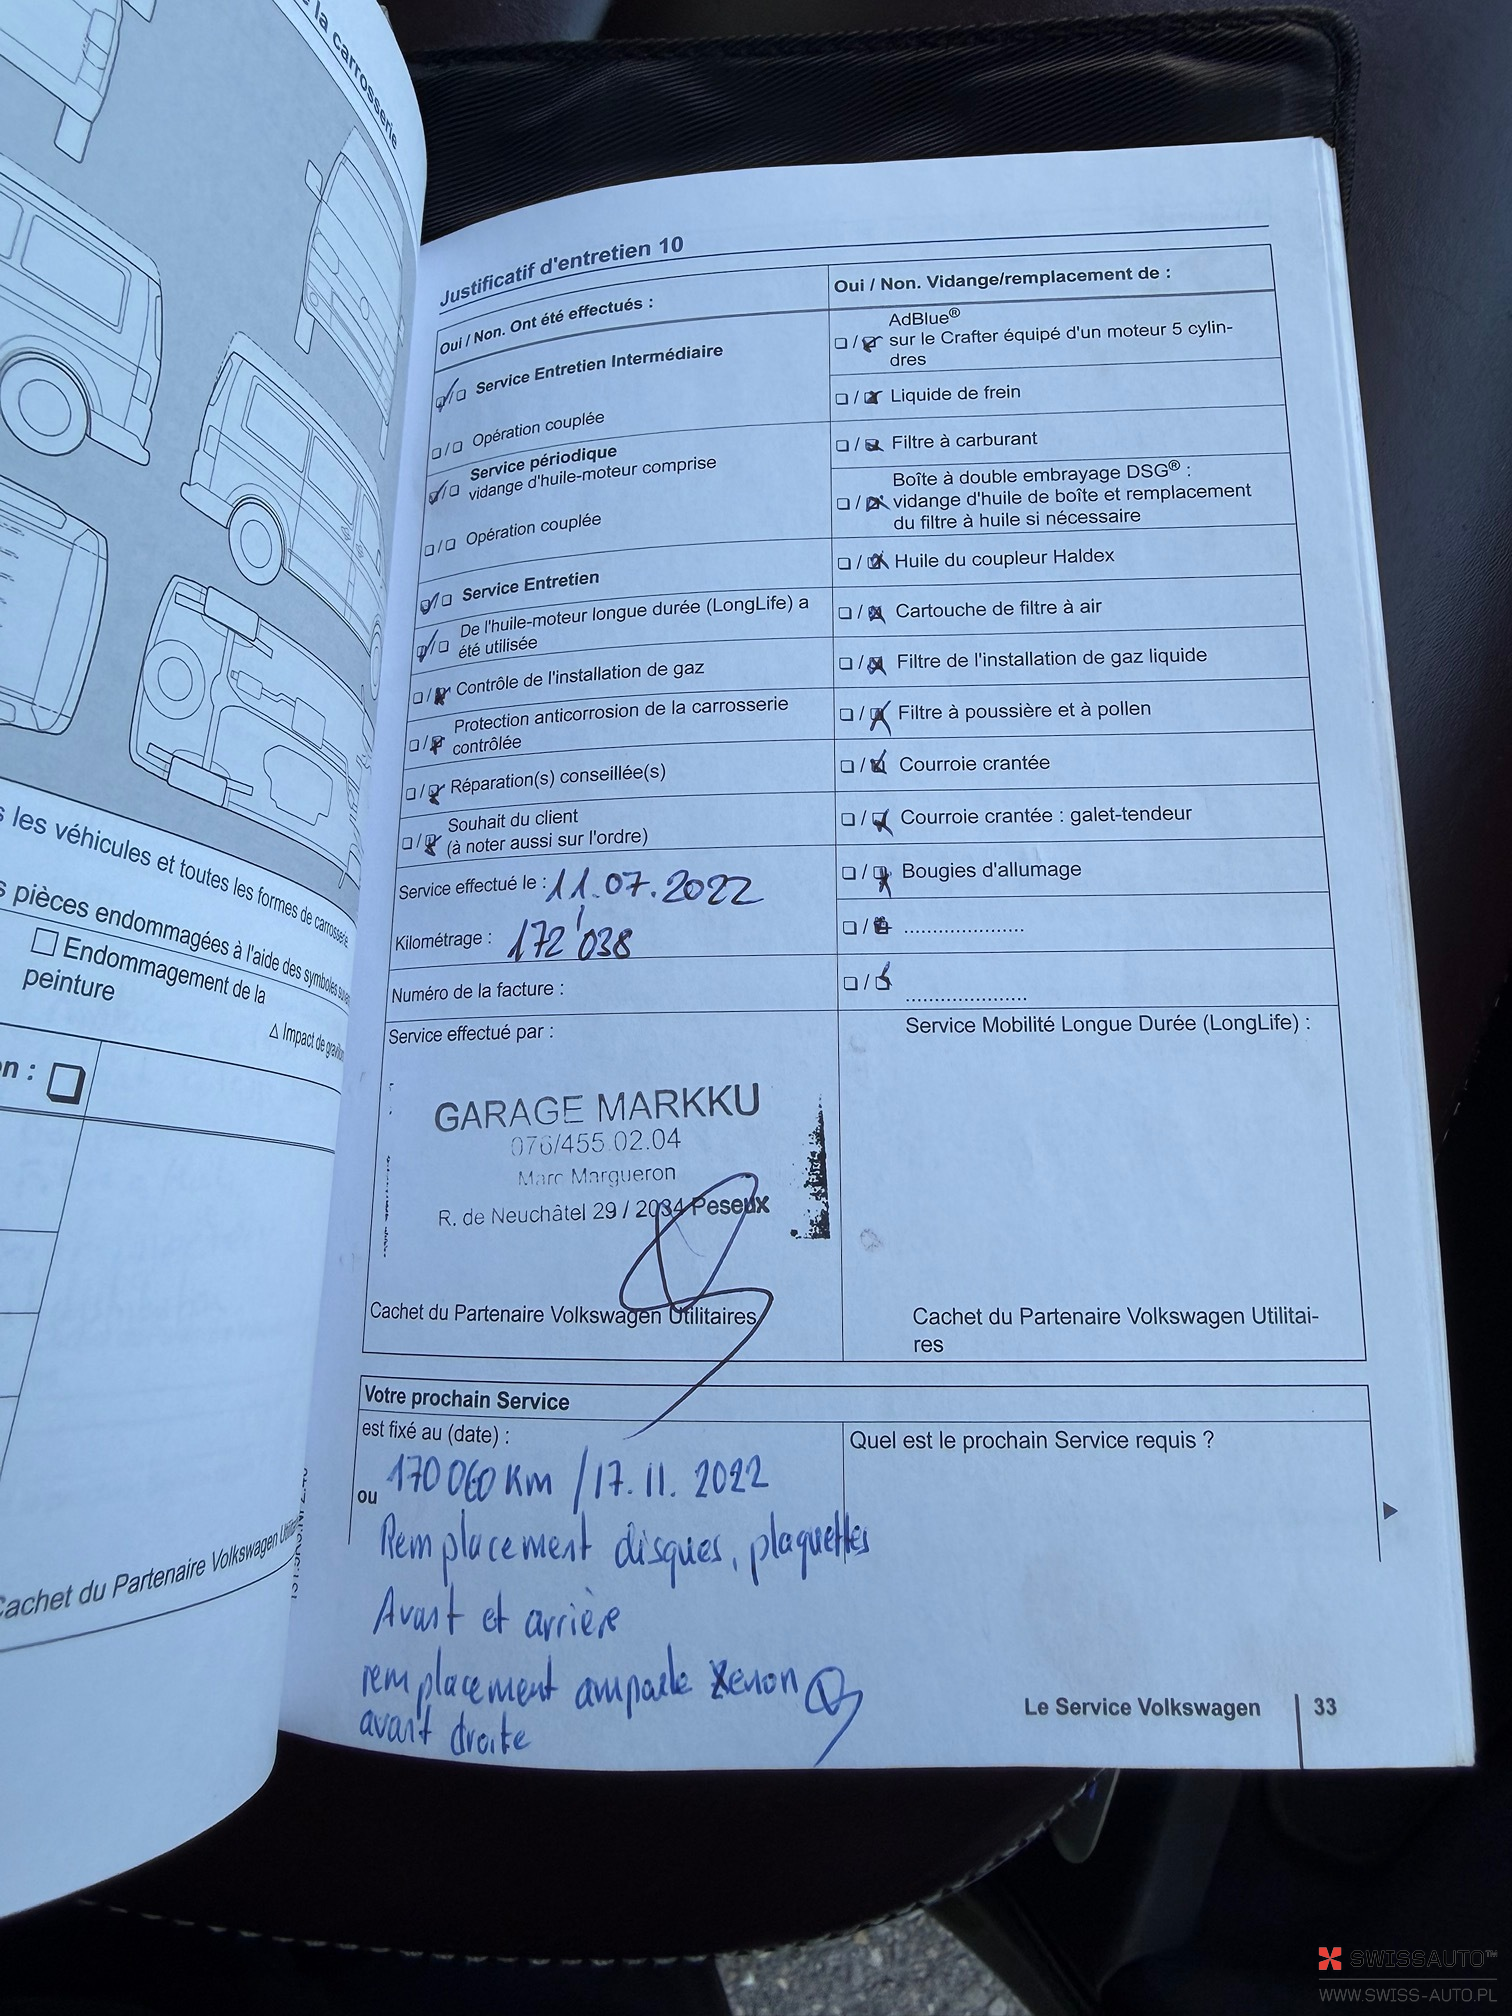 la carrosserie
s les véhicules et toutes les formes de carrosserie
s pièces endommagées à l'aide des symboles
Endommagement de la
peinture
Δ Impact de
n :
Cachet du Partenaire Volkswagen
Justificatif d'entretien 10
Oui / Non. Ont été effectués :
Service Entretien Intermédiaire
Opération couplée
Service périodique
vidange d'huile-moteur comprise
Opération couplée
Service Entretien
De l'huile-moteur longue durée (LongLife) a
été utilisée
Contrôle de l'installation de gaz
Protection anticorrosion de la carrosserie
contrôlée
Réparation(s) conseillée(s)
Souhait du client
(à noter aussi sur l'ordre)
Service effectué le : 11.07.2022
Kilométrage : 172'038
Numéro de la facture :
Service effectué par :
GARAGE MARKKU
076/455.02.04
Marc Margueron
R. de Neuchâtel 29 / 2034 Peseux
Cachet du Partenaire Volkswagen Utilitaires
Oui / Non. Vidange/remplacement de :
AdBlue®
sur le Crafter équipé d'un moteur 5 cylin-
dres
Liquide de frein
Filtre à carburant
Boîte à double embrayage DSG® :
vidange d'huile de boîte et remplacement
du filtre à huile si nécessaire
Huile du coupleur Haldex
Cartouche de filtre à air
Filtre de l'installation de gaz liquide
Filtre à poussière et à pollen
Courroie crantée
Courroie crantée : galet-tendeur
Bougies d'allumage
.....................
.....................
Service Mobilité Longue Durée (LongLife) :
Cachet du Partenaire Volkswagen Utilitai-
res
Votre prochain Service
est fixé au (date) :
Quel est le prochain Service requis ?
170 060 Km / 17.11.2022
ou
Remplacement disques, plaquettes
Avant et arrière
remplacement ampoule Xenon
avant droite
Le Service Volkswagen 33
SWISSAUTO™
WWW.SWISS-AUTO.PL